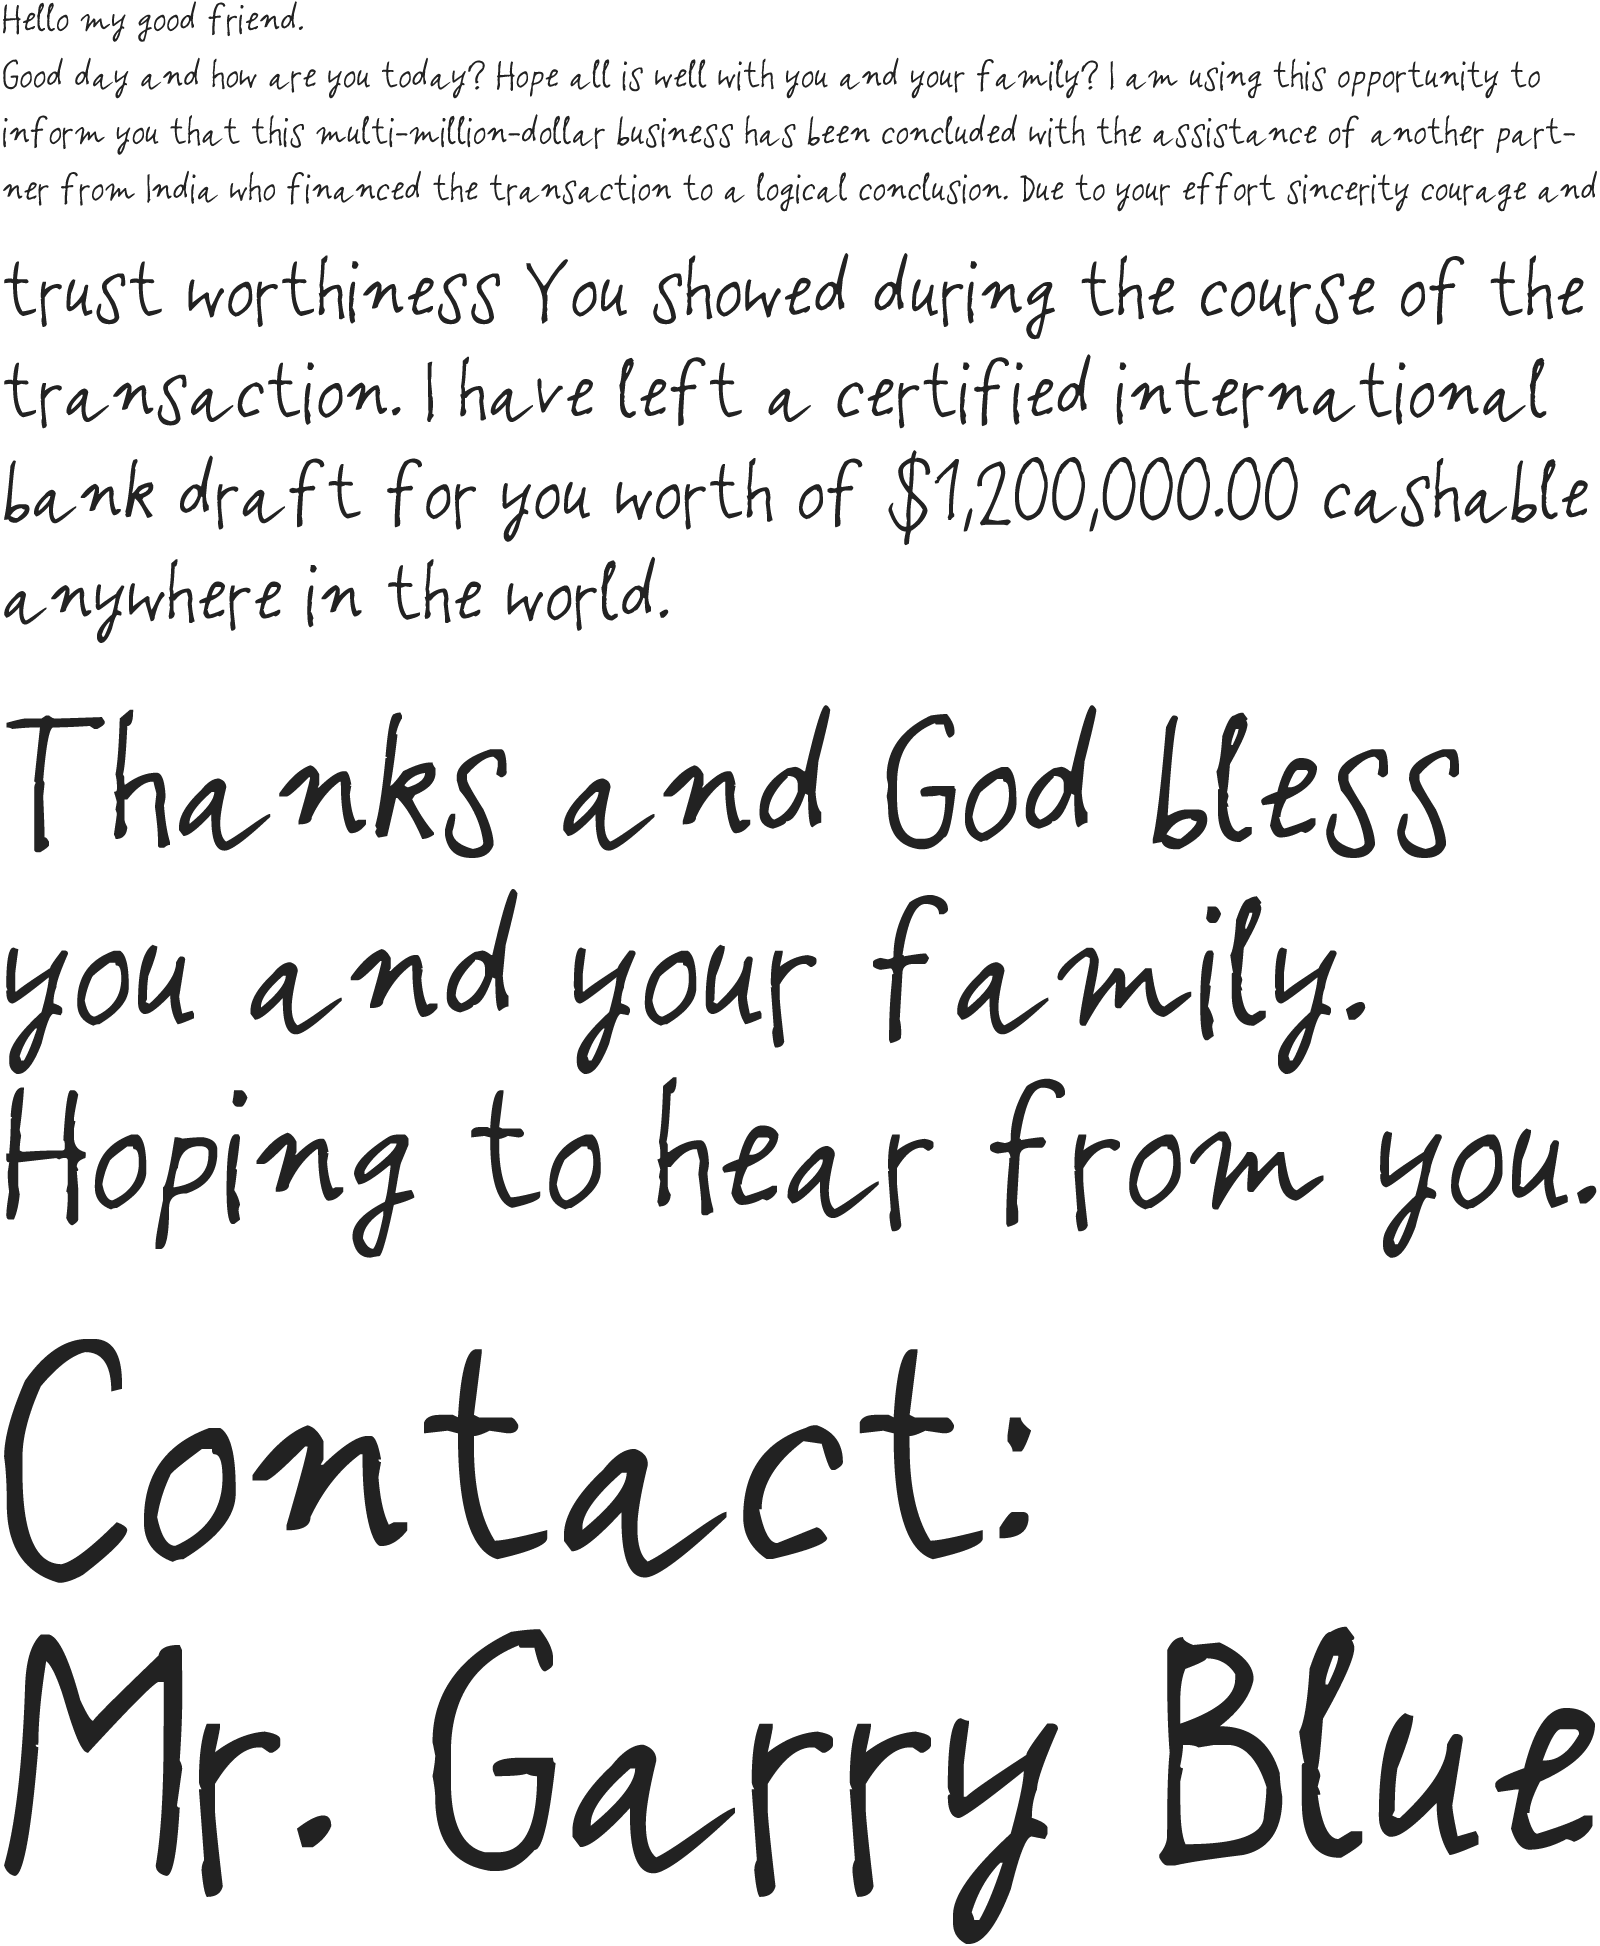 Hello my good friend.
Good day and how are you today? Hope all is well with you and your family? I am using this opportunity to
inform you that this multi-million-dollar business has been concluded with the assistance of another part-
ner from India who financed the transaction to a logical conclusion. Due to your effort sincerity courage and
trust worthiness You showed during the course of the
transaction. I have left a certified international
bank draft for you worth of $1,200,000.00 cashable
anywhere in the world.
Thanks and God bless
you and your family.
Hoping to hear from you.
Contact:
Mr. Garry Blue